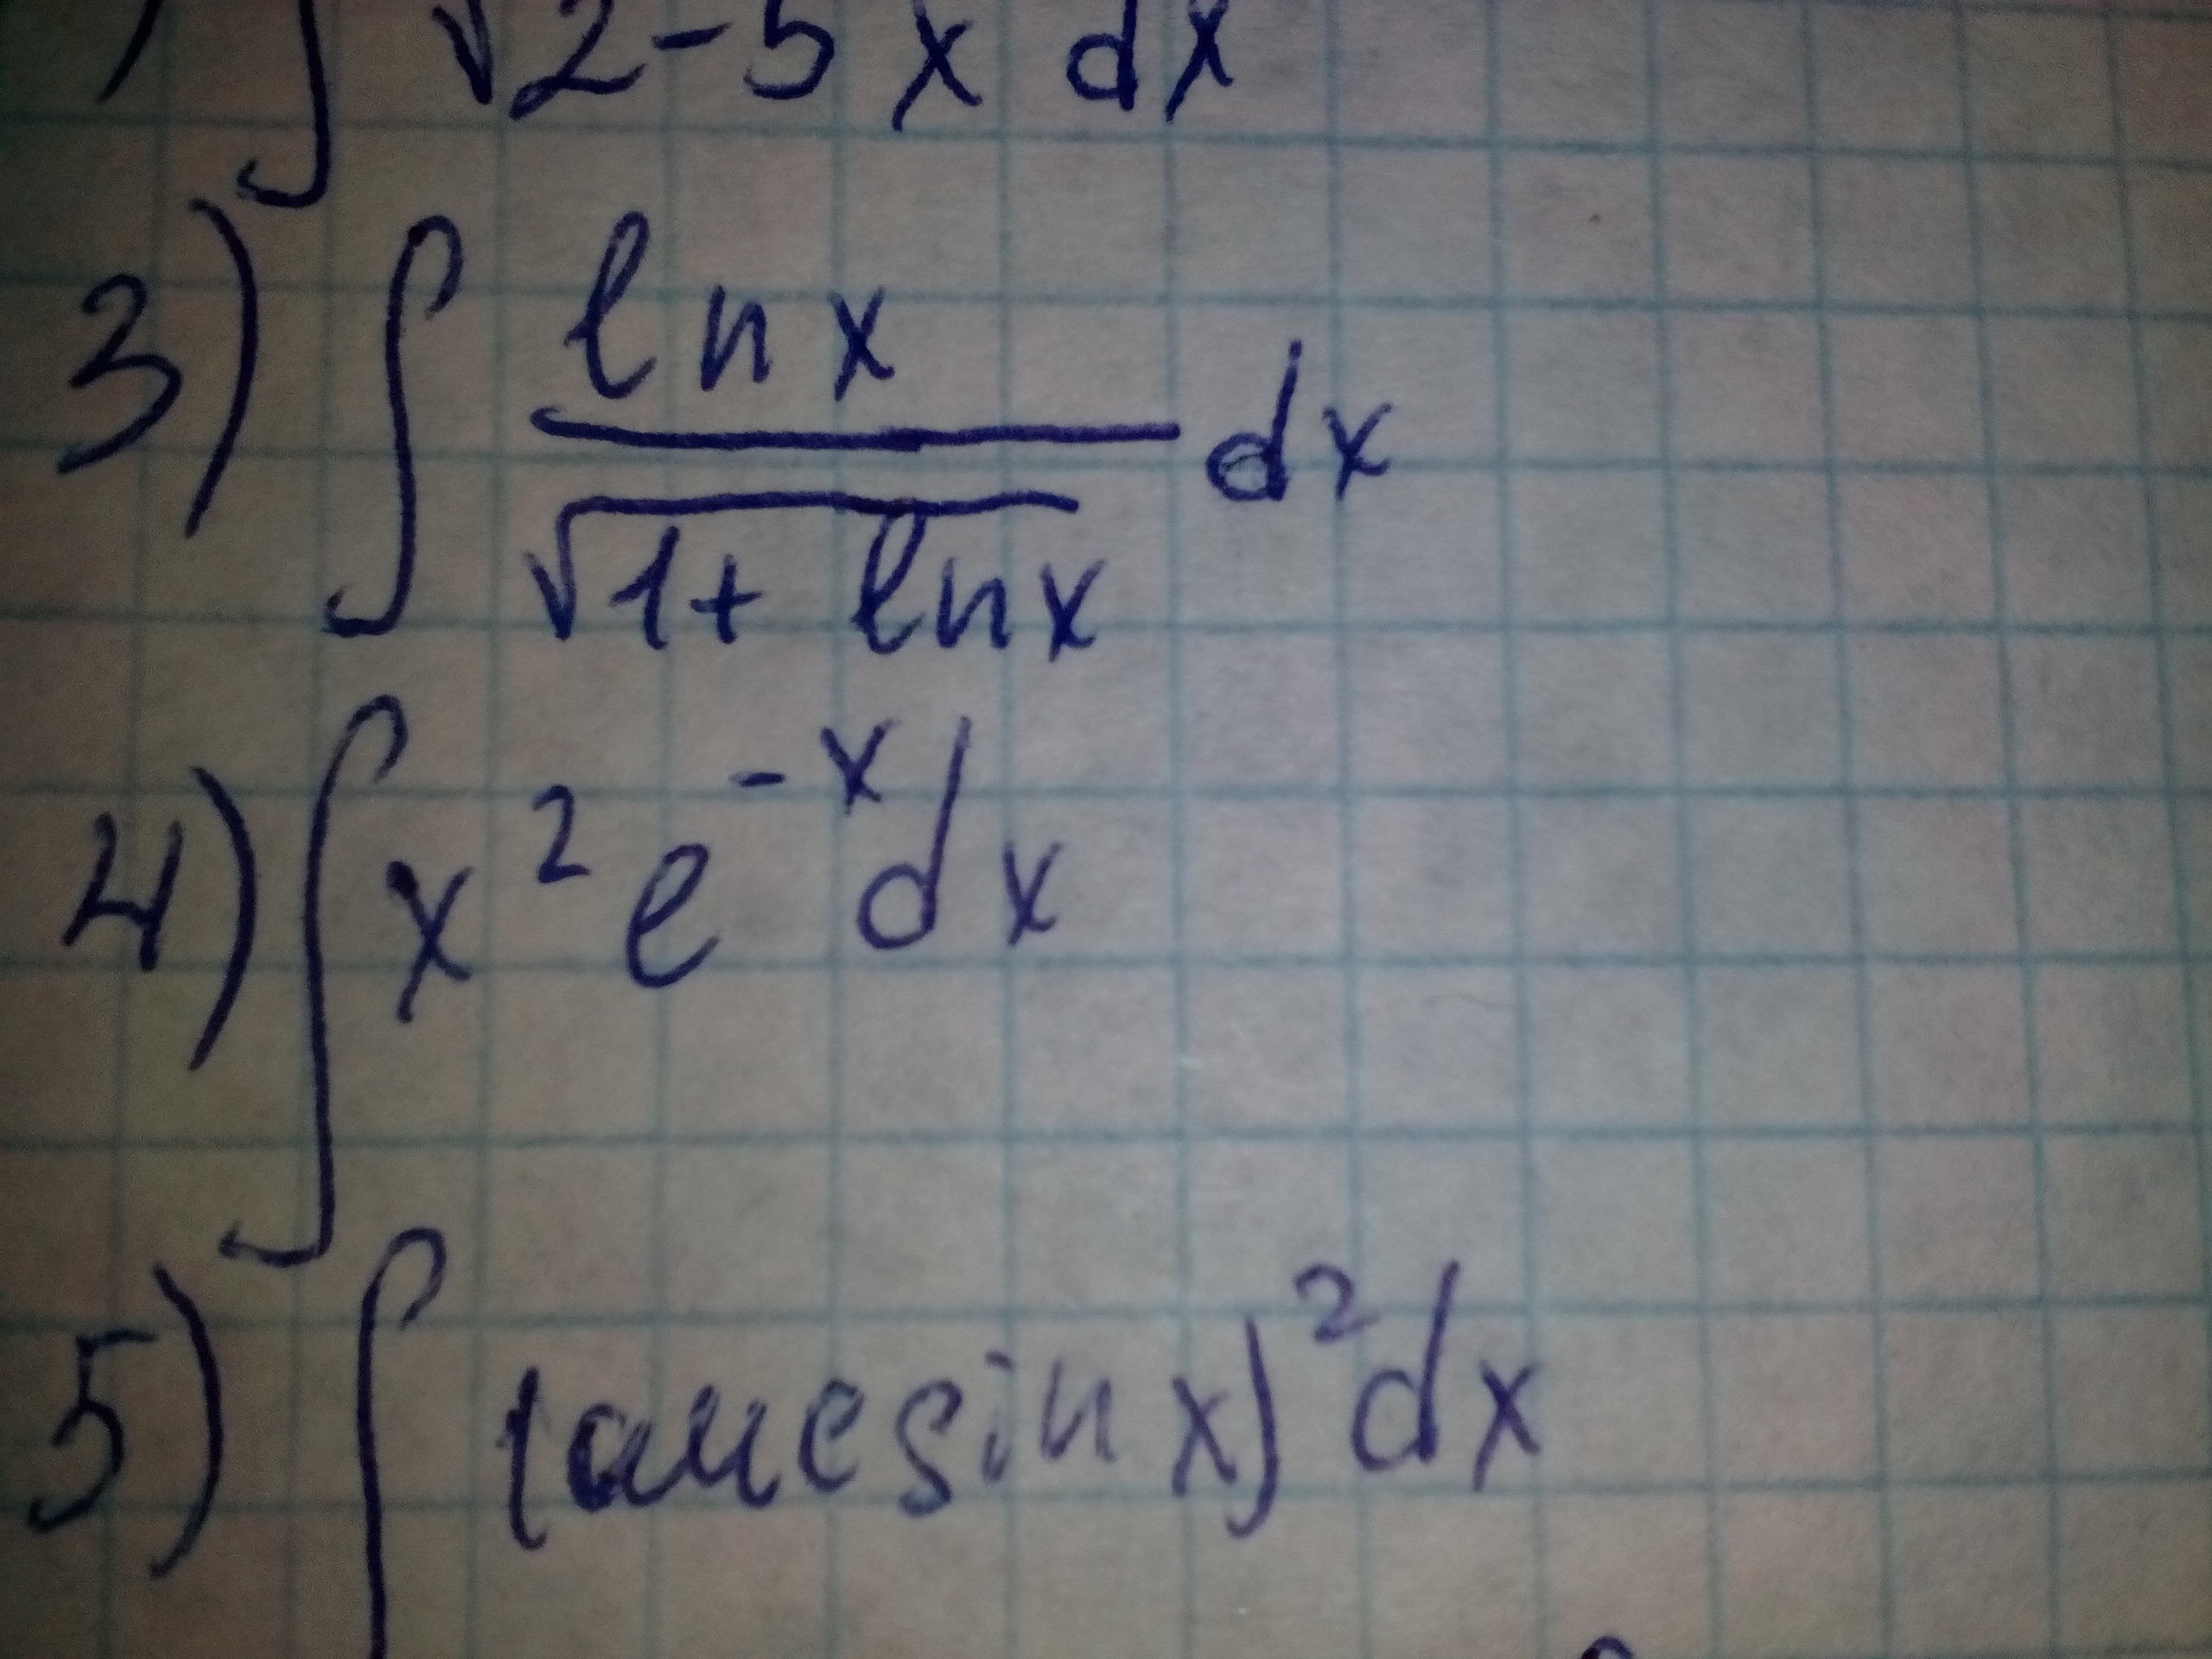 ) ∫ √2-5x dx
3) ∫ ln x / √(1+ ln x) dx
4) ∫ x² e^(-x) dx
5) ∫ (arcsin x)² dx